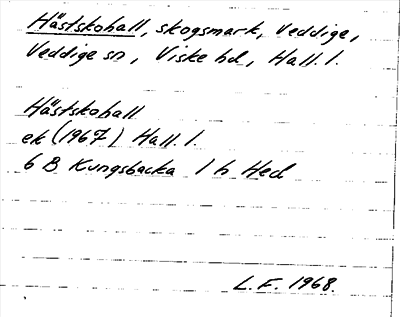 Hästskohall, skogsmark, Veddige,
Veddige sn, Viske hd, Hall. l.
Hästskohall
ek (1967) Hall. l.
6 B Kungsbacka 1 h Hed
L. F. 1968.